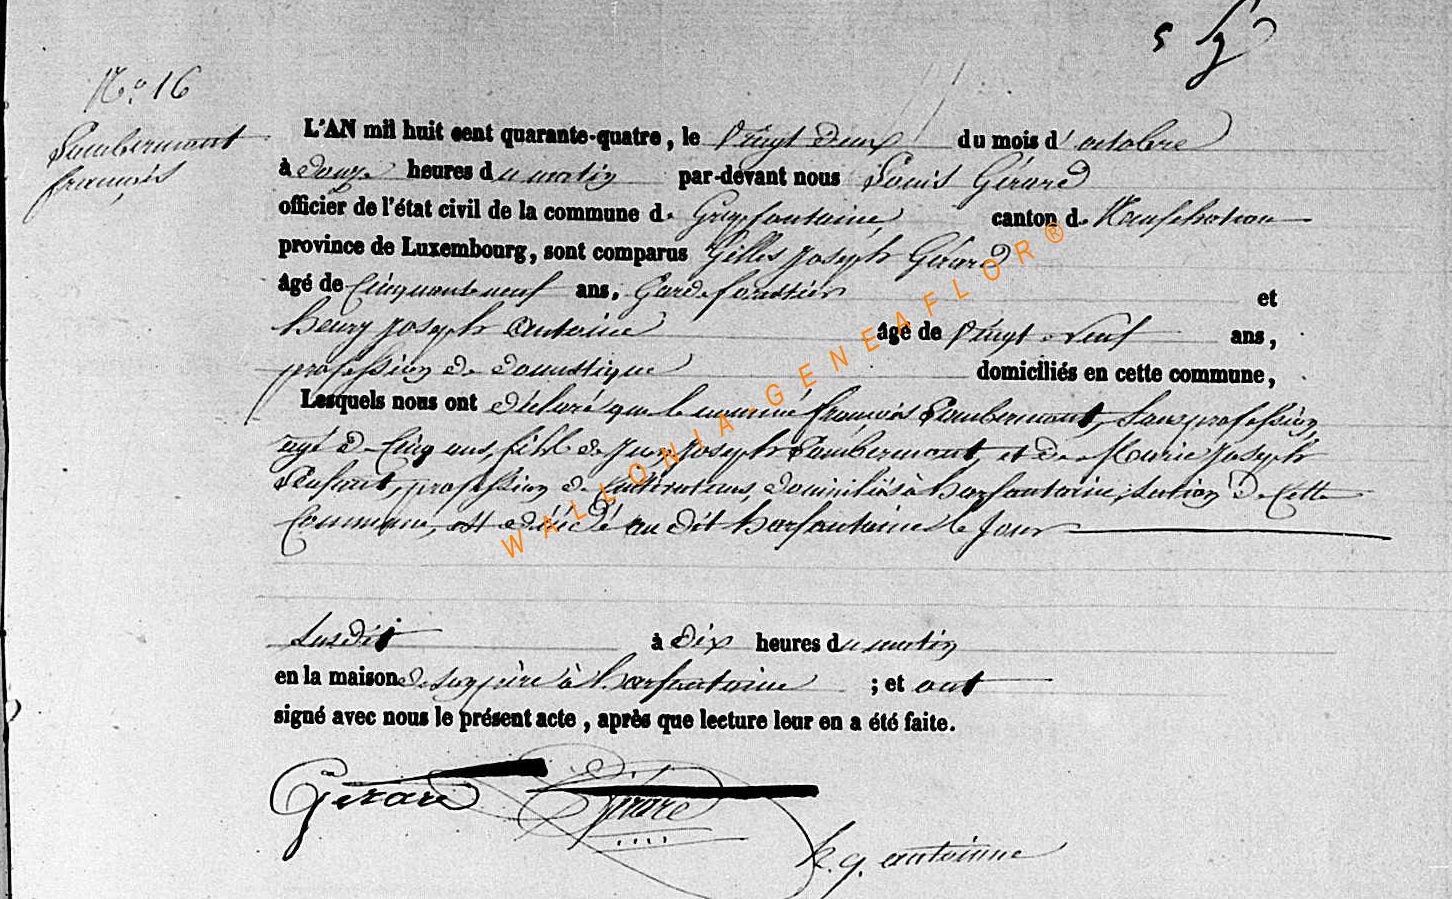 5
N.o 16
Lambermont
françois
L'AN mil huit cent quarante-quatre, le Vingt deux du mois d'octobre
à douze heures du matin par-devant nous Louis Gérard
officier de l'état civil de la commune de Grapfontaine canton de Neufchateau
province de Luxembourg, sont comparus Gilles joseph Gérard
âgé de Cinquante neuf ans, Garde forestier et
henry joseph antoine âgé de Vingt Neuf ans,
profession de domestique domiciliés en cette commune,
Lesquels nous ont déclaré que le nommé françois Lambermont, Sans profession,
agé de Cinq ans, fils de jean joseph Lambermont, et de Marie joseph
profession de Cultivateurs, domiciliés à harfontaine, section de Cette
Commune, est décédé au dit harfontaine le jour
susdit à dix heures du matin
en la maison de son père à harfontaine ; et ont
signé avec nous le présent acte, après que lecture leur en a été faite.
Gérard Gérard
h. j. antoinne
WALLONIA.GENEAFLOR®